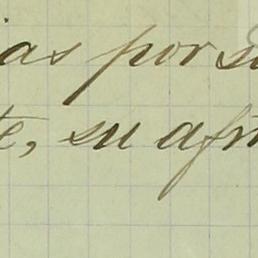 ias por su
te, su afm